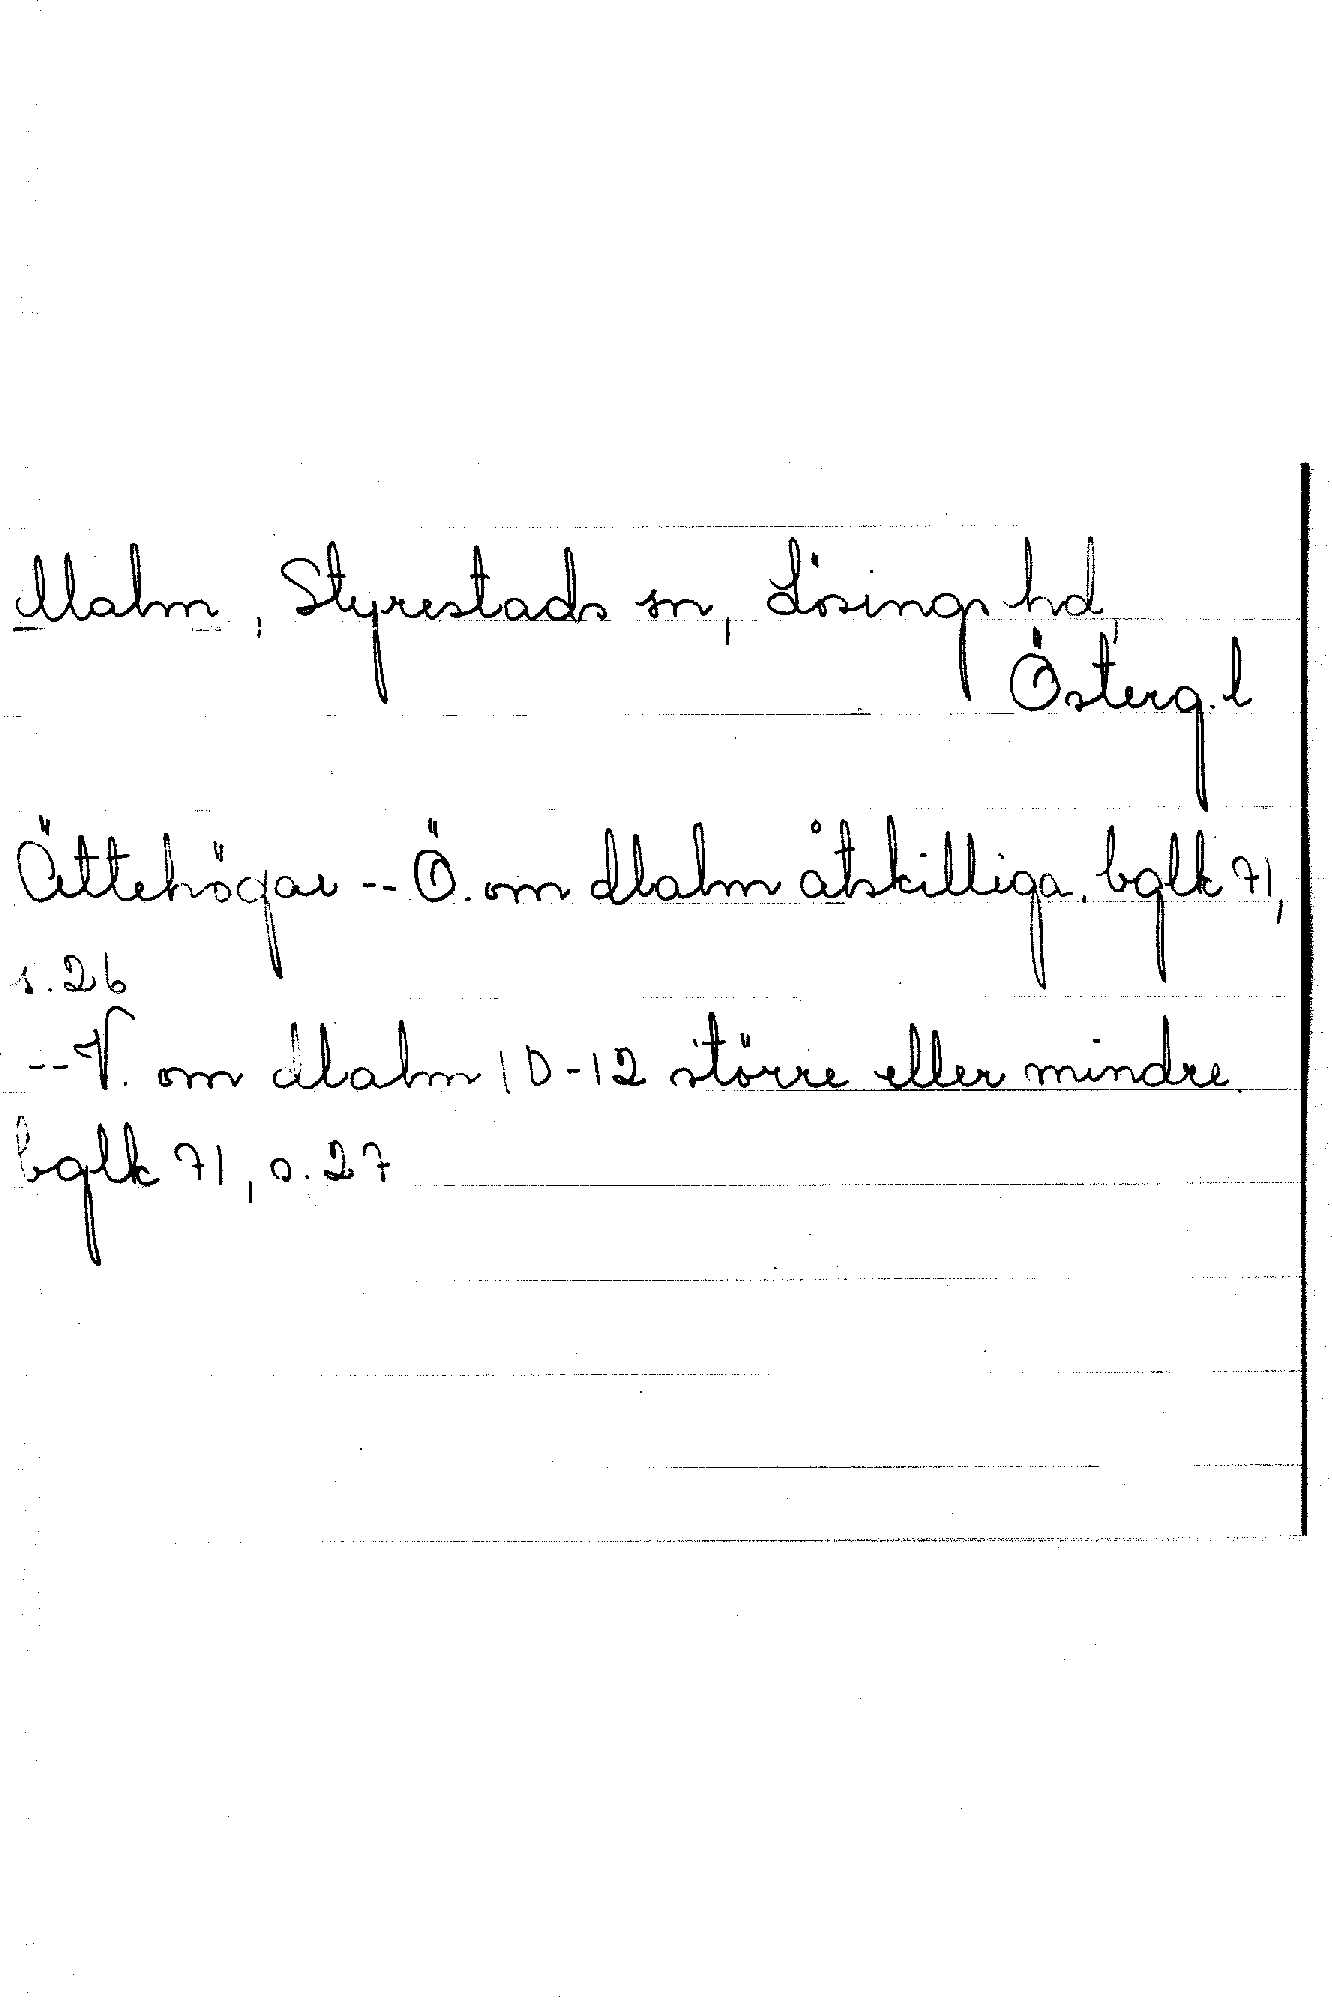 Malm, Styrestads sn, Lösings hd,
Österg. l
Ättehögar -- Ö. om Malm åtskilliga. bglk 71,
s. 26
-- V. om Malm 10-12 större eller mindre.
bglk 71, s. 27